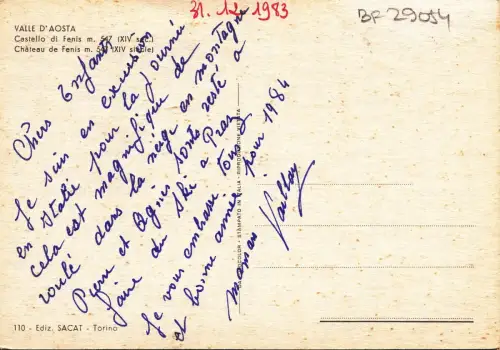 31.12.1983
BF 29054
VALLE D'AOSTA
Castello di Fenis m. 547 (XIV sec.)
Château de Fenis m. 547 (XIV siècle)
Chers Enfants
Je suis en excursion
en Italie pour la journée
cela est magnifique de
roulé dans la neige en montagne
Pierre et Agnès sont resté a
faire du ski a Praz
Je vous embrasse tous
et bonne année pour 1984
maman
STAMPATO IN ITALIA - RIPRODUZIONE VIETATA
110 - Ediz. SACAT - Torino